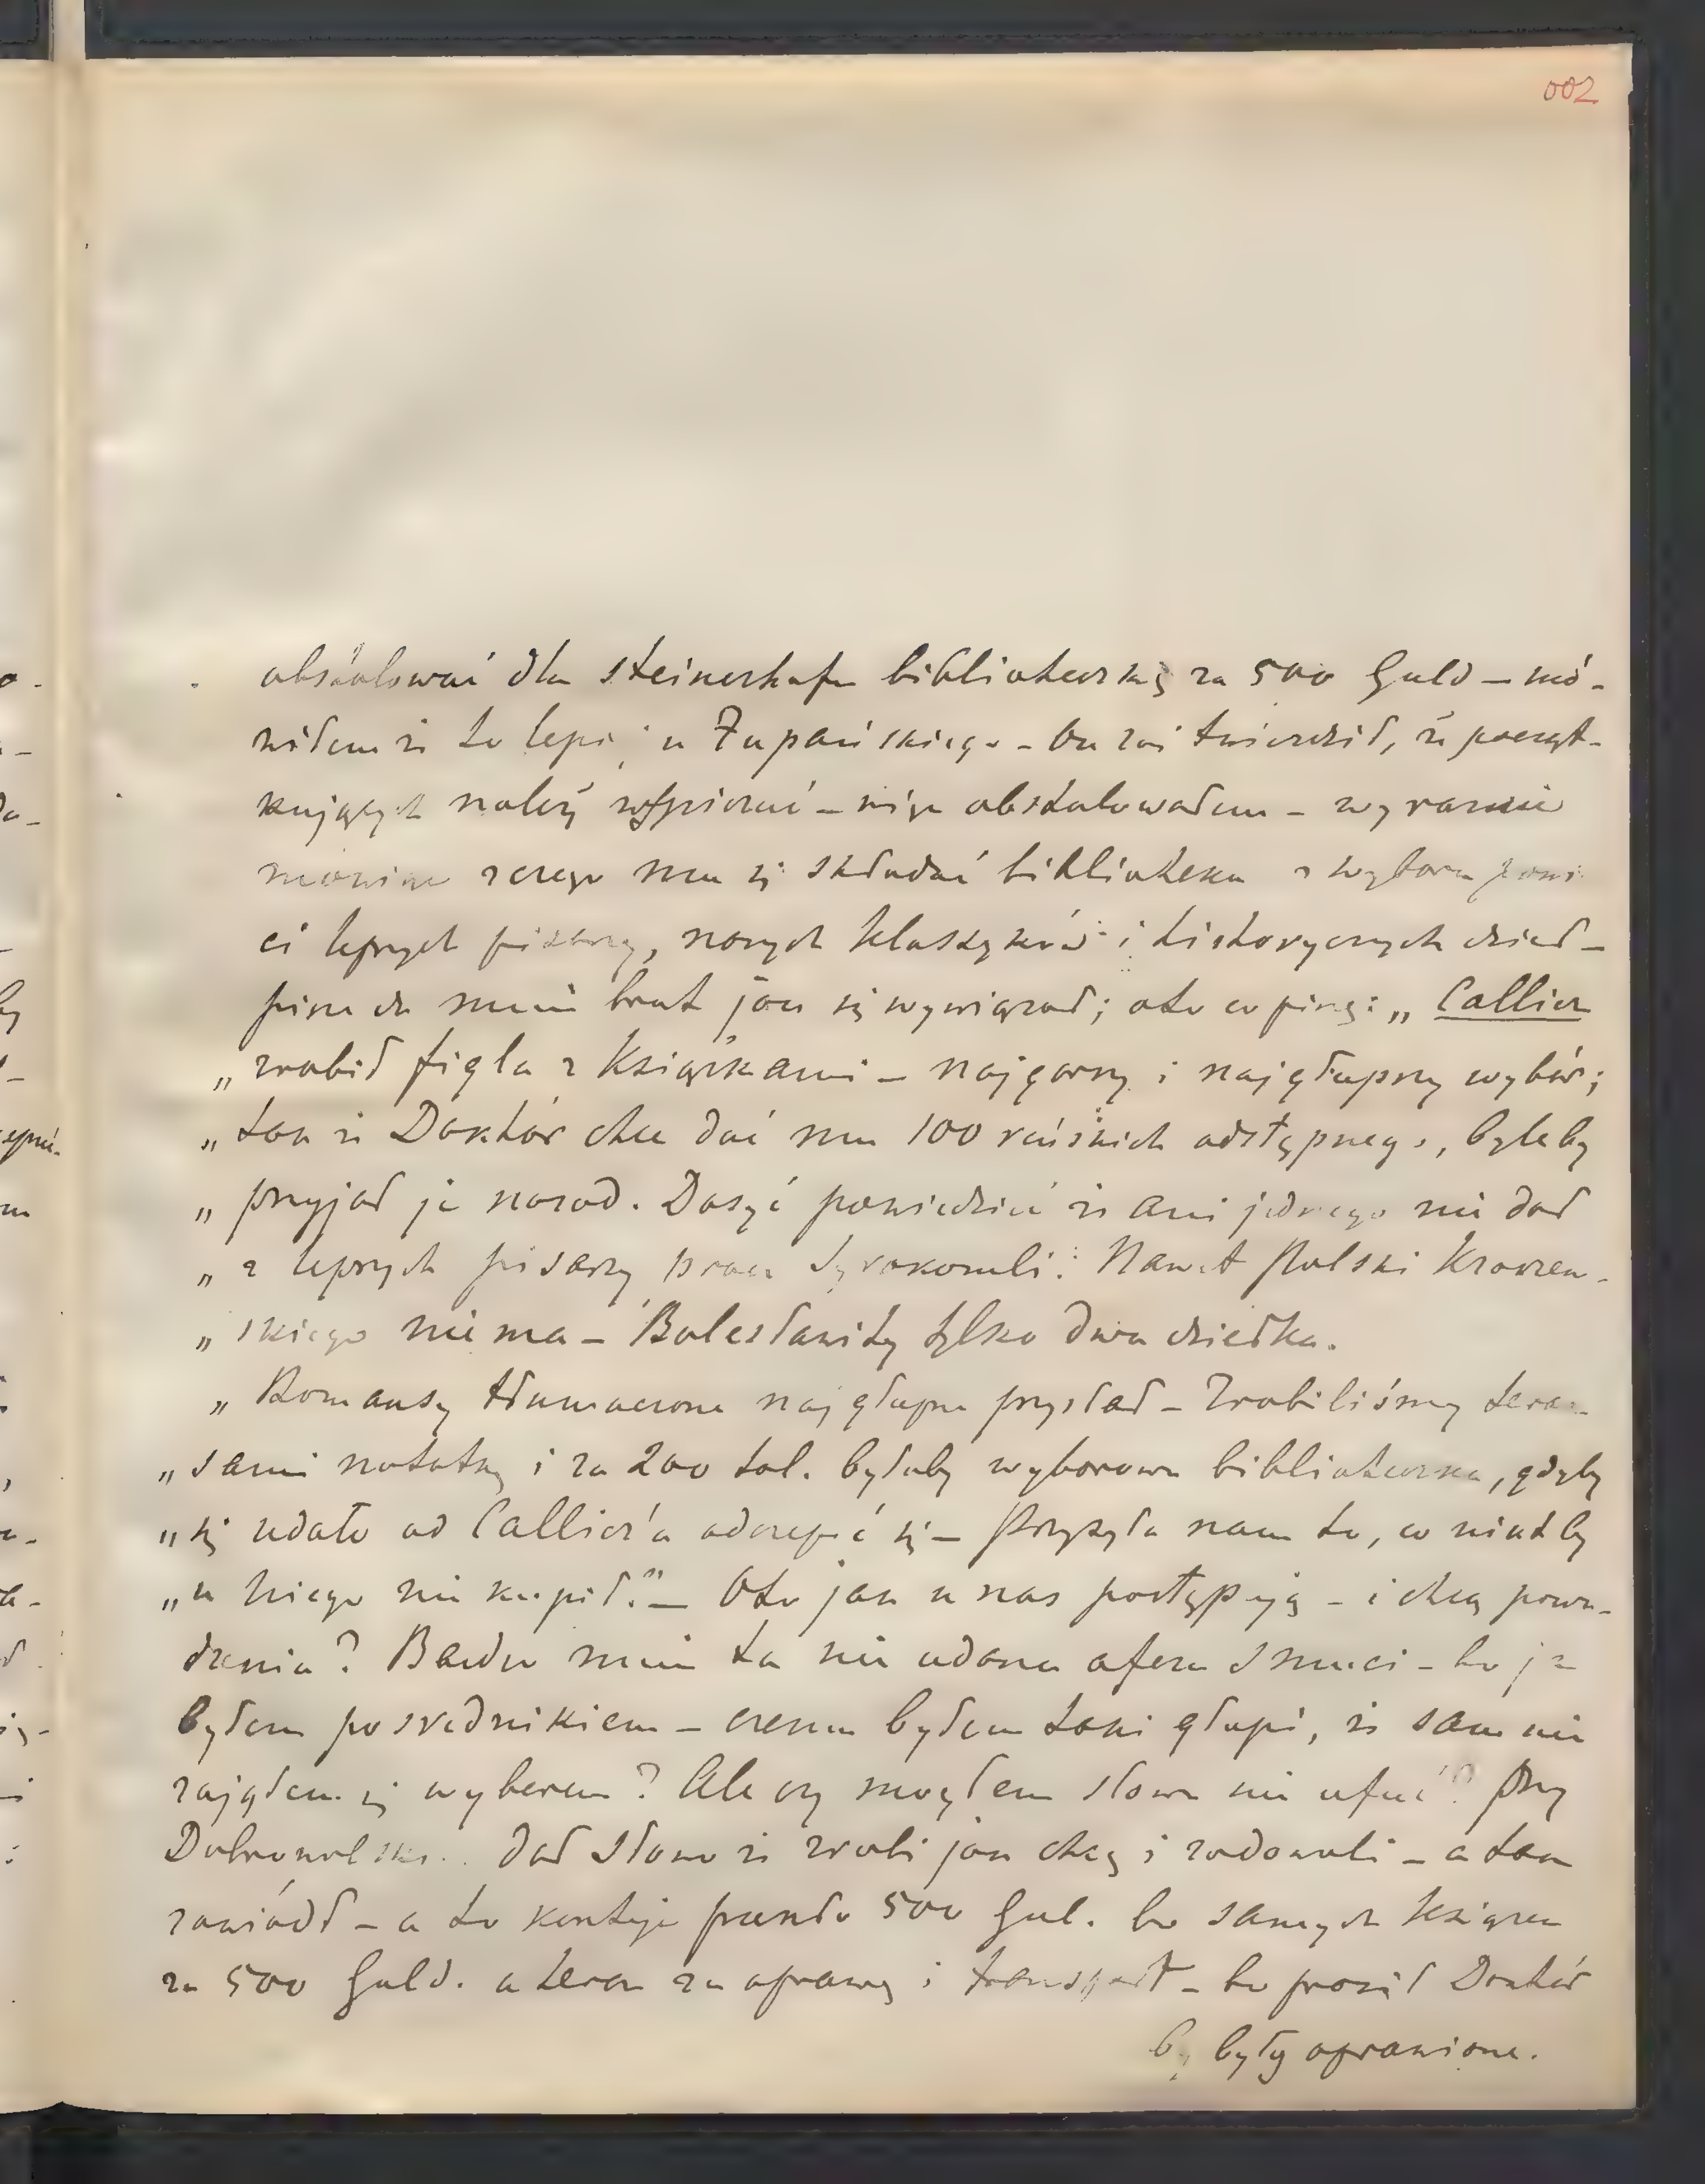 002
obstalować dla Steinerhofu bibliateczkę za 500 Guld – mó-
wiłem że to lepiej u Żupańskiego – on zaś twierdził, że począt-
kujących należy wspierać – więc obstalowałem – wyraźnie
mówiąc z czego ma się składać biblioteka z wyboru
ci lepszych pisarzy, naszych klassyków i historycznych dzieł –
pisze do mnie brat jak się wywiązał; oto co piszę: „Callier
„zrobił figla z Książkami – najgorszy i najgłupszy wybór;
„tak że Doktór chce dać mu 100 reńskich odstępnego, byleby
„przyjął je nazad. Dosyć powiedzieć że ani jednego nie dał
„z lepszych pisarzy prócz Syrokomli. Nawet Polski Kraszew-
„skiego niema – Bolesławity tylko dwa dziełka.
„Romansy tłumaczone najgłupsze przysłał – Zrobiliśmy teraz
„sami notatkę i za 200 tal. byłaby wyborowa biblioteczka, gdyby
„się udało od Callier'a odczepić się – Przysyła nam to, co nikt by
„u niego nie kupił." – Oto jak u nas postępują – i chcą powo-
dzenia? Bardzo mnie ta nie udana afera smuci – bo ja
byłem posrednikiem – czemu byłem taki głupi, że sam nie
zająłem się wyborem? Ale czy mogłem słowu nie ufać? Przy
dał słowo że zrobi jak chcę i zadowoli – a tak
zawiódł – a to kosztuje przeszło 500 Gul. bo samych książek
za 500 Guld. a teraz za oprawę i transport – bo prosił Doktór
by były oprawione.